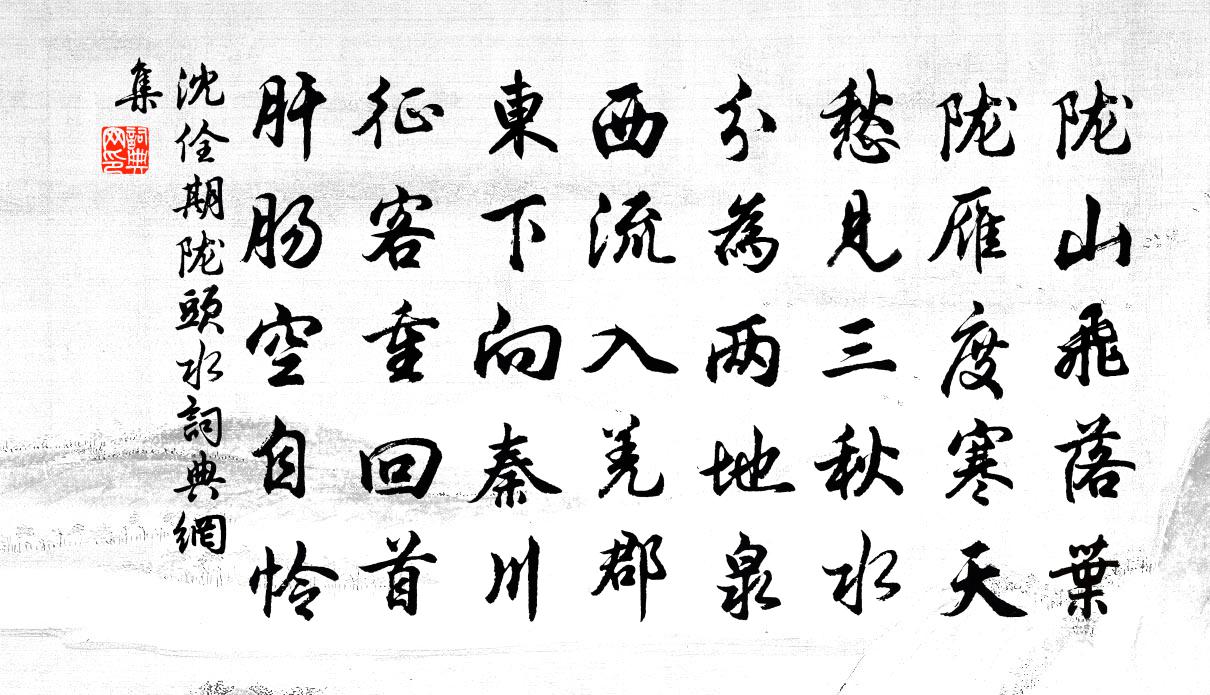 陇山飛落葉
陇雁度寒天
愁見三秋水
分為两地泉
西流入羌郡
東下向秦川
征客重回首
肝肠空自怜
沈佺期陇頭水詞典網
集
詞典
网印